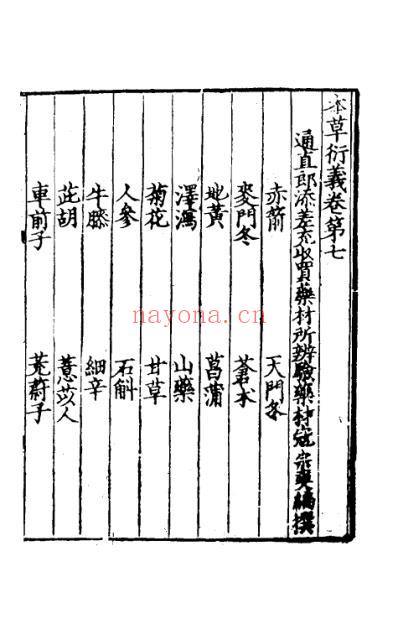 本草衍義卷第七
通直郎添差充收買藥材所辨驗藥材寇宗奭編撰
赤箭 天門冬
麥門冬 蒼术
地黃 菖蒲
澤瀉 山藥
菊花 甘草
人參 石斛
牛膝 細辛
茈胡 薏苡人
車前子 茺蔚子
nayona.cn